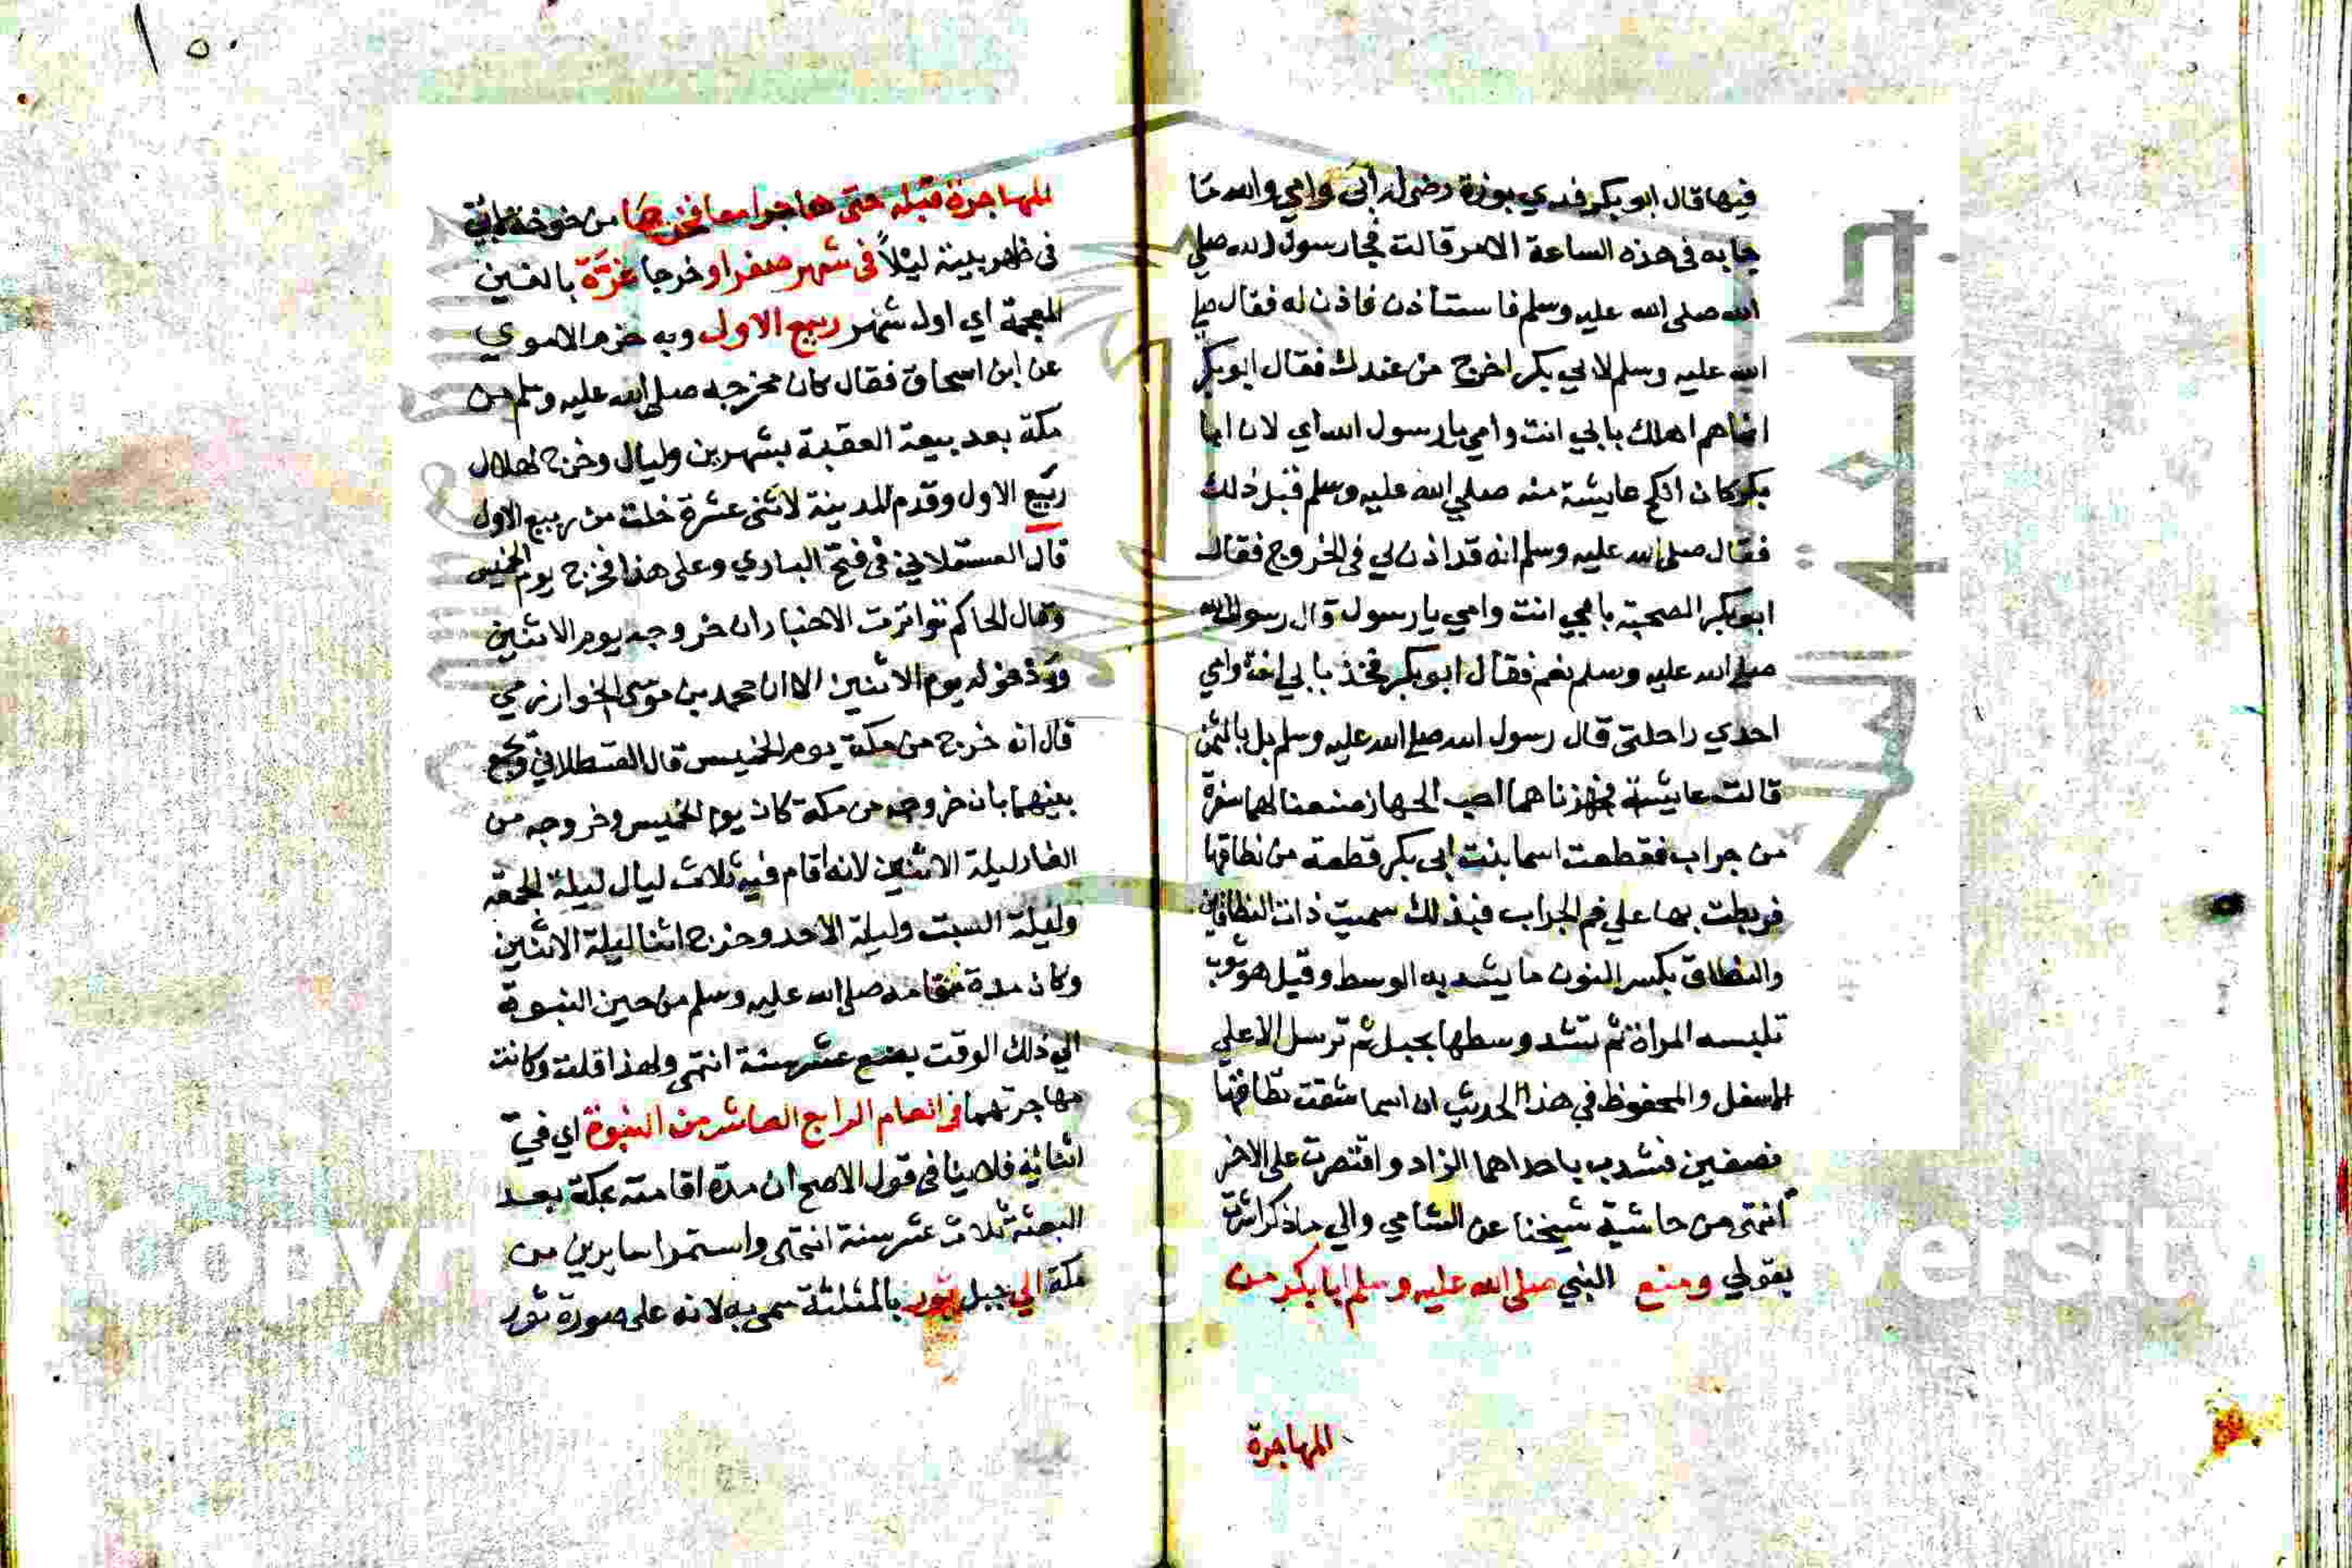 فيها قال ابو بكر فدي بوزة رضي له أبي وامي والله ما
جا به في هذه الساعة الا امر قالت فجا رسول الله صلي
الله صلى الله عليه وسلم فاستأذن فاذن له فقال صلي
الله عليه وسلم لابي بكر اخرج من عندك فقال ابو بكر
انما هم اهلك بابي انت وامي يا رسول الله اي لان ابا
بكر كان انكح عايشة منه صلي الله عليه وسلم قبل ذلك
فقال صلى الله عليه وسلم انه قد اذن لي في الخروج فقال
ابو بكر الصحبة بابي انت وامي يا رسول قال رسول الله
صلي الله عليه وسلم نعم فقال ابو بكر فخذ بابي انت وامي
احدي راحلتي قال رسول الله صلي الله عليه وسلم بل بالثمن
قالت عايشة فجهزناهما احب الجهاز صنعنا لهما سفرة
من جراب فقطعت اسما بنت ابي بكر قطعة من نطاقها
فربطت بها علي فم الجراب فبذلك سميت ذات النطاقين
والنطاق بكسر النون ما يشد به الوسط وقيل هو ثوب
تلبسه المراة ثم تشد وسطها بحبل ثم ترسل الاعلي
الاسفل والمحفوظ في هذا الحديث ان اسما شقت نطاقها
نصفين فشدت باحداهما الزاد واقتصرت على الاخر
انتهى من حاشية شيخنا عن الشامي والي ما ذكر اشرت
بقولي ومنع النبي صلى الله عليه وسلم ابا بكر من
للمهاجرة
١٥٠
للمهاجرة قبله حتى هاجرا معا فخرجا من خوخة
في ظهر بيته ليلاً في شهر صفر او خرجا غرّة بالغين
المعجمة اي اول شهر ربيع الاول وبه جزم الاموي
عن ابن اسحاق فقال كان مخرجه صلى الله عليه وسلم من
مكة بعد بيعة العقبة بشهرين وليال وخرج لهلال
ربيع الاول وقدم المدينة لاثني عشرة خلت من ربيع الاول
قال العسقلاني في فتح الباري وعلى هذا فخرج يوم الخميس
وقال الحاكم تواترت الاخبار ان خروجه يوم الاثنين
ودخوله يوم الاثنين الا ان محمد بن موسى الخوارزمي
قال انه خرج من مكة يوم الخميس قال القسطلاني ويجمع
بينهما بان خروجه من مكة كان يوم الخميس وخروجه من
الغار ليلة الاثنين لانه أقام فيه ثلاث ليال ليلة الجمعة
وليلة السبت وليلة الاحد وخرج اثنا ليلة الاثنين
وكان مدة مقامه صلى الله عليه وسلم من حين النبوة
الي ذلك الوقت بضع عشر سنة انتهى ولهذا قلت وكانت
مهاجرتهما في العام الرابع العاشر من النبوة اي في
اثنائه فلا ينافي قول الاصح ان مدة اقامته بمكة بعد
البعثة ثلاث عشر سنة انتهى واستمرا سايرين من
مكة الي جبل ثور بالمثلثة سمي به لانه على صورة ثور